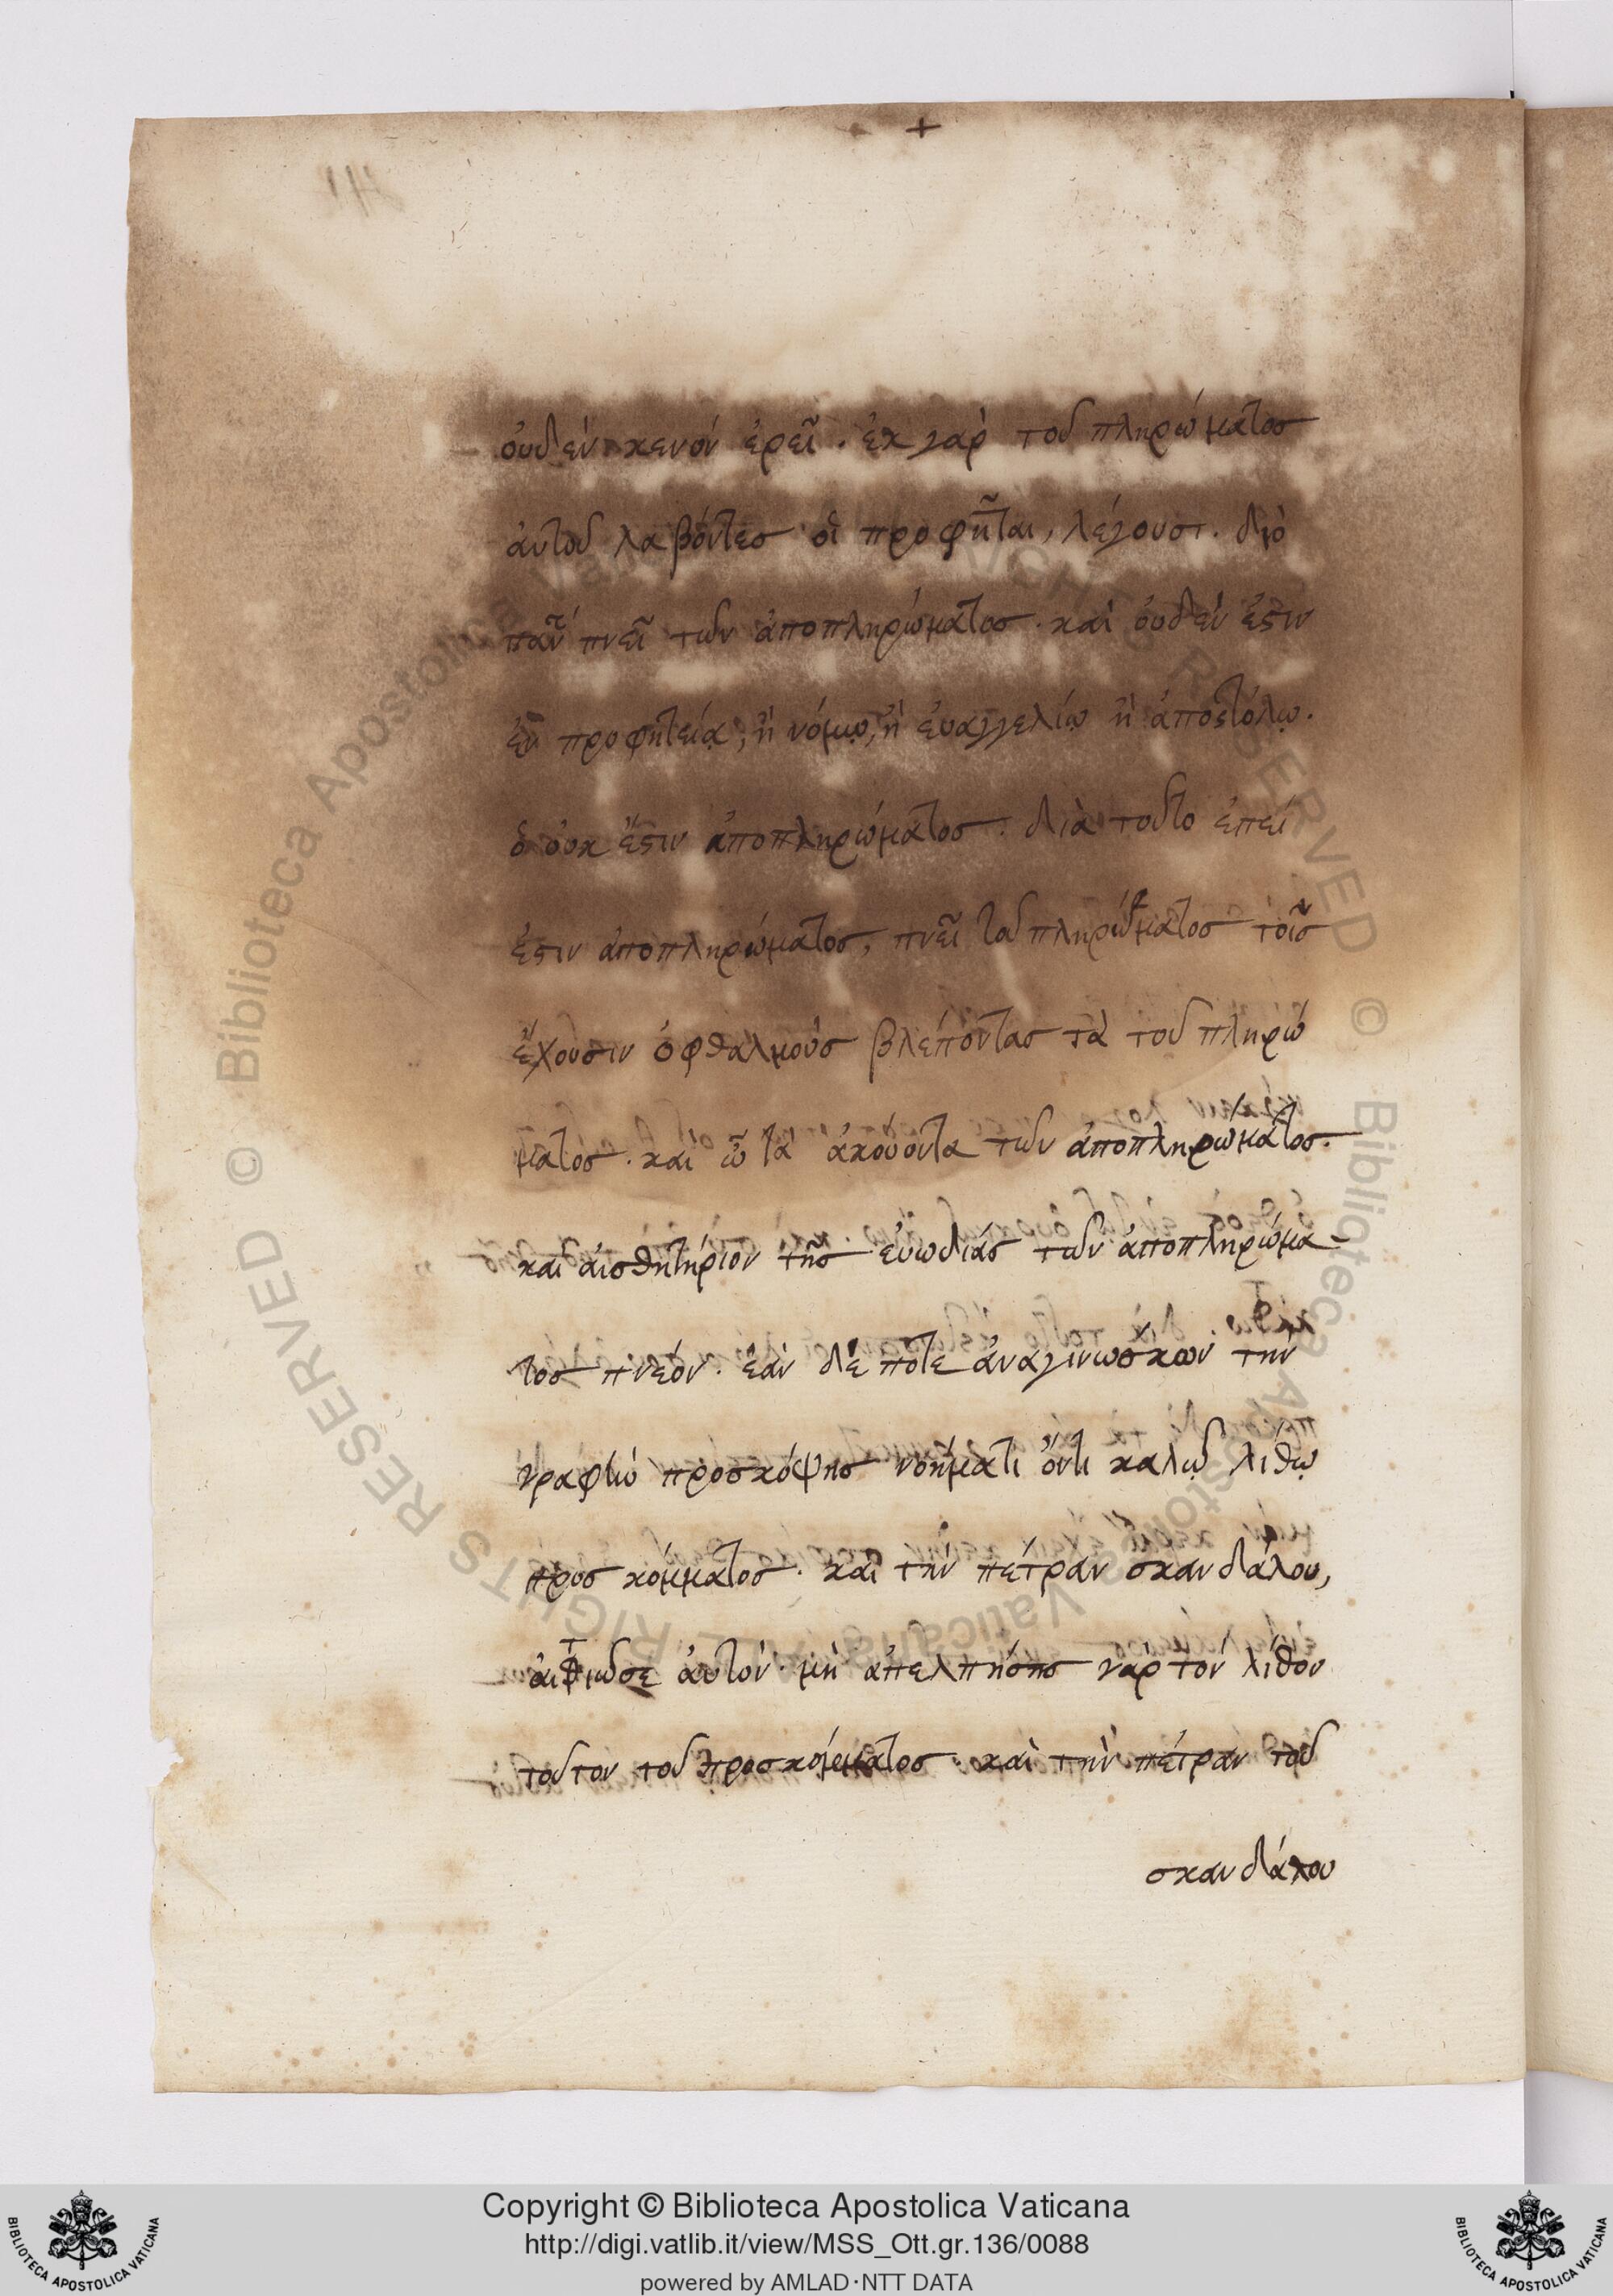 +
οὐδὲν κενὸν ἐρεῖ. ἐκ γὰρ τοῦ πληρώματος
ἀυτοῦ λαβόντες οἱ προφῆται, λέγουσι. διὸ
πᾶν πνεῖ των ἀποπληρώματος. καὶ ὀυδέν ἐστιν
ἐν προφητείᾳ, ἢ νόμῳ, ἢ ἐυαγγελίῳ ἢ ἀποστόλῳ.
ὃ ὀυκ ἔστιν ἀποπληρώματος. διὰ τοῦτο ἐπεί
ἐστιν ἀποπληρώματος, πνεῖ τοῦ πληρώματος τοῖς
ἔχουσιν ὀφθαλμοὺς βλέποντας τὰ τοῦ πληρώ
ματος. καὶ ὦτα ἀκούοντα των ἀποπληρώματος.
καὶ ἀισθητήριον τῆς ἐυωδίας των ἀποπληρώμα-
τος πνεόν. ἐὰν δέ ποτε ἀναγινώσκων τὴν
γραφὴν προσκόψης νοήματι ὄντι καλῶ λίθῳ
προσκόμματος. καὶ τὴν πέτραν σκανδάλου,
ἀιτιωσε ἀυτόν. μὴ ἀπελπήσης γὰρ τὸν λίθον
τοῦτον τοῦ προσκόμματος. καὶ τὴν πέτραν τοῦ
σκανδάλου
© Biblioteca Apostolica Vaticana
ALL RIGHTS RESERVED
Copyright © Biblioteca Apostolica Vaticana
http://digi.vatlib.it/view/MSS_Ott.gr.136/0088
powered by AMLAD·NTT DATA
BIBLIOTECA APOSTOLICA VATICANA
BIBLIOTECA APOSTOLICA VATICANA